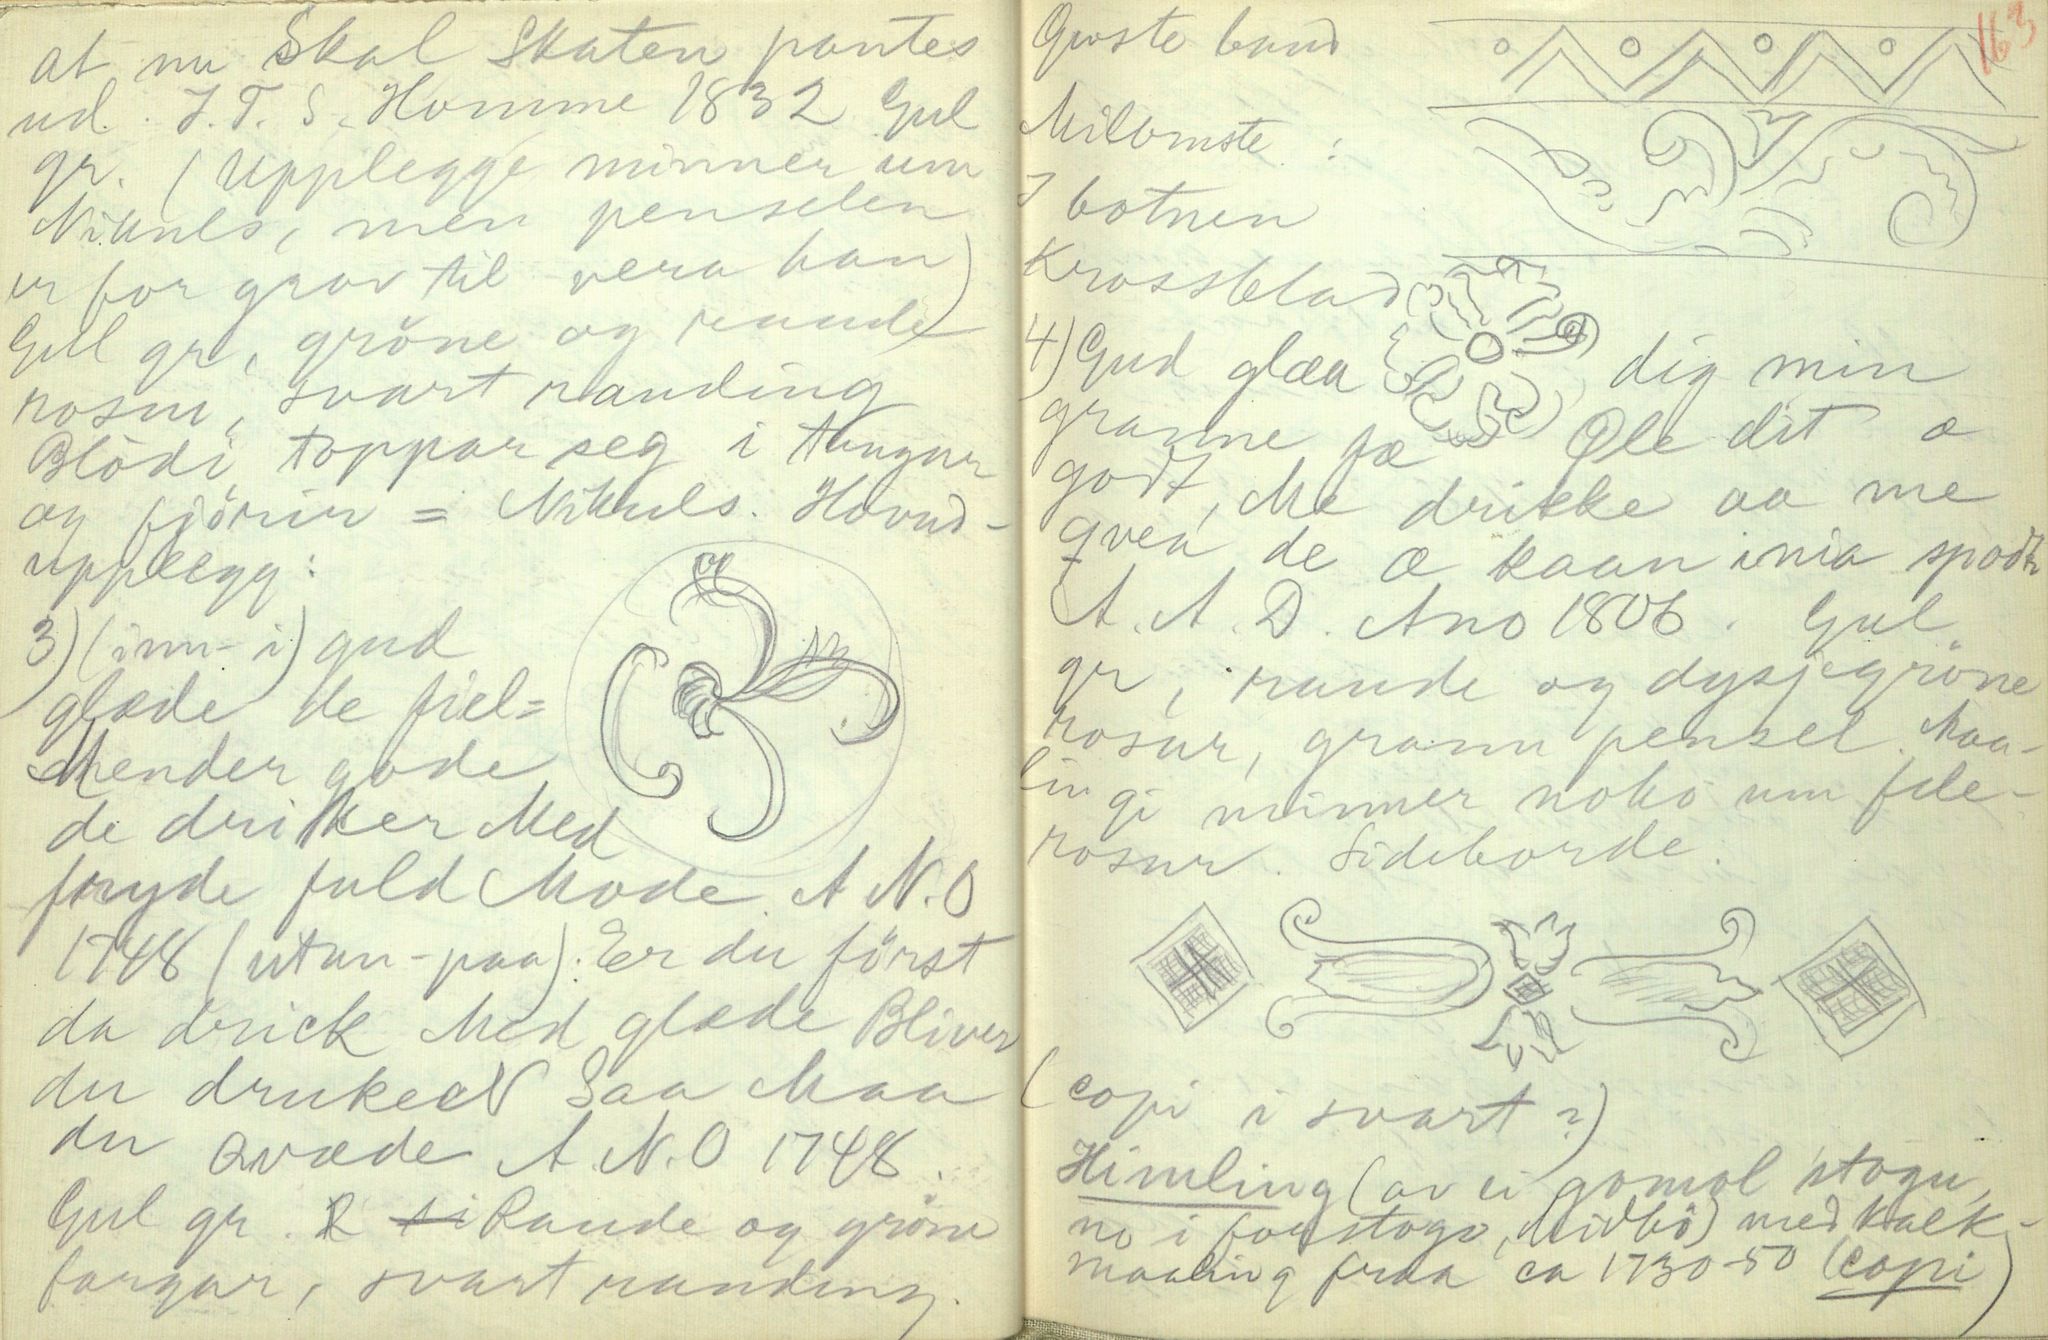 at nu Skal Skaten pantes
ud. J. T. S. Homme 1832 Gul
gr. (Upplegge minner um
Nikuls, men penselen
er for grov til vera han)
Gul gr, gröne og raude
rosur, svart randing
Blödi toppar seg i tungur
og fjörur = Nikuls. Hovud-
upplegg:
3) (inn-i) gud
glæde de fiel=
Mender gode
de driker Med
fryde fuld Mode. A N.O
1748 (utan-paa). Er du först
da drick Med glæde Bliver
du drukeN Saa Maa
du Qvæde A. N. O 1748.
Gul gr. Raude og gröne
fargar, svart randing.
163
Gvste band
Milomste :
I botnen
Krossblad
4) Gud glæa dig min
granne fæ Øle dit æ
godt, Me drikke aa me
qvea de æ kaan inia spodt
A. A. D. Ano 1806. Gul
gr, raude og dysjegröne
rosur, grann pensel. Maa-
lingi minner noko um file-
rosur. Sideborde:
(copi i svart?)
Himling (av ei gomol stogu,
no i forstogo, Midbö) med kalk-
maaling fraa ca 1730-50 (copi)